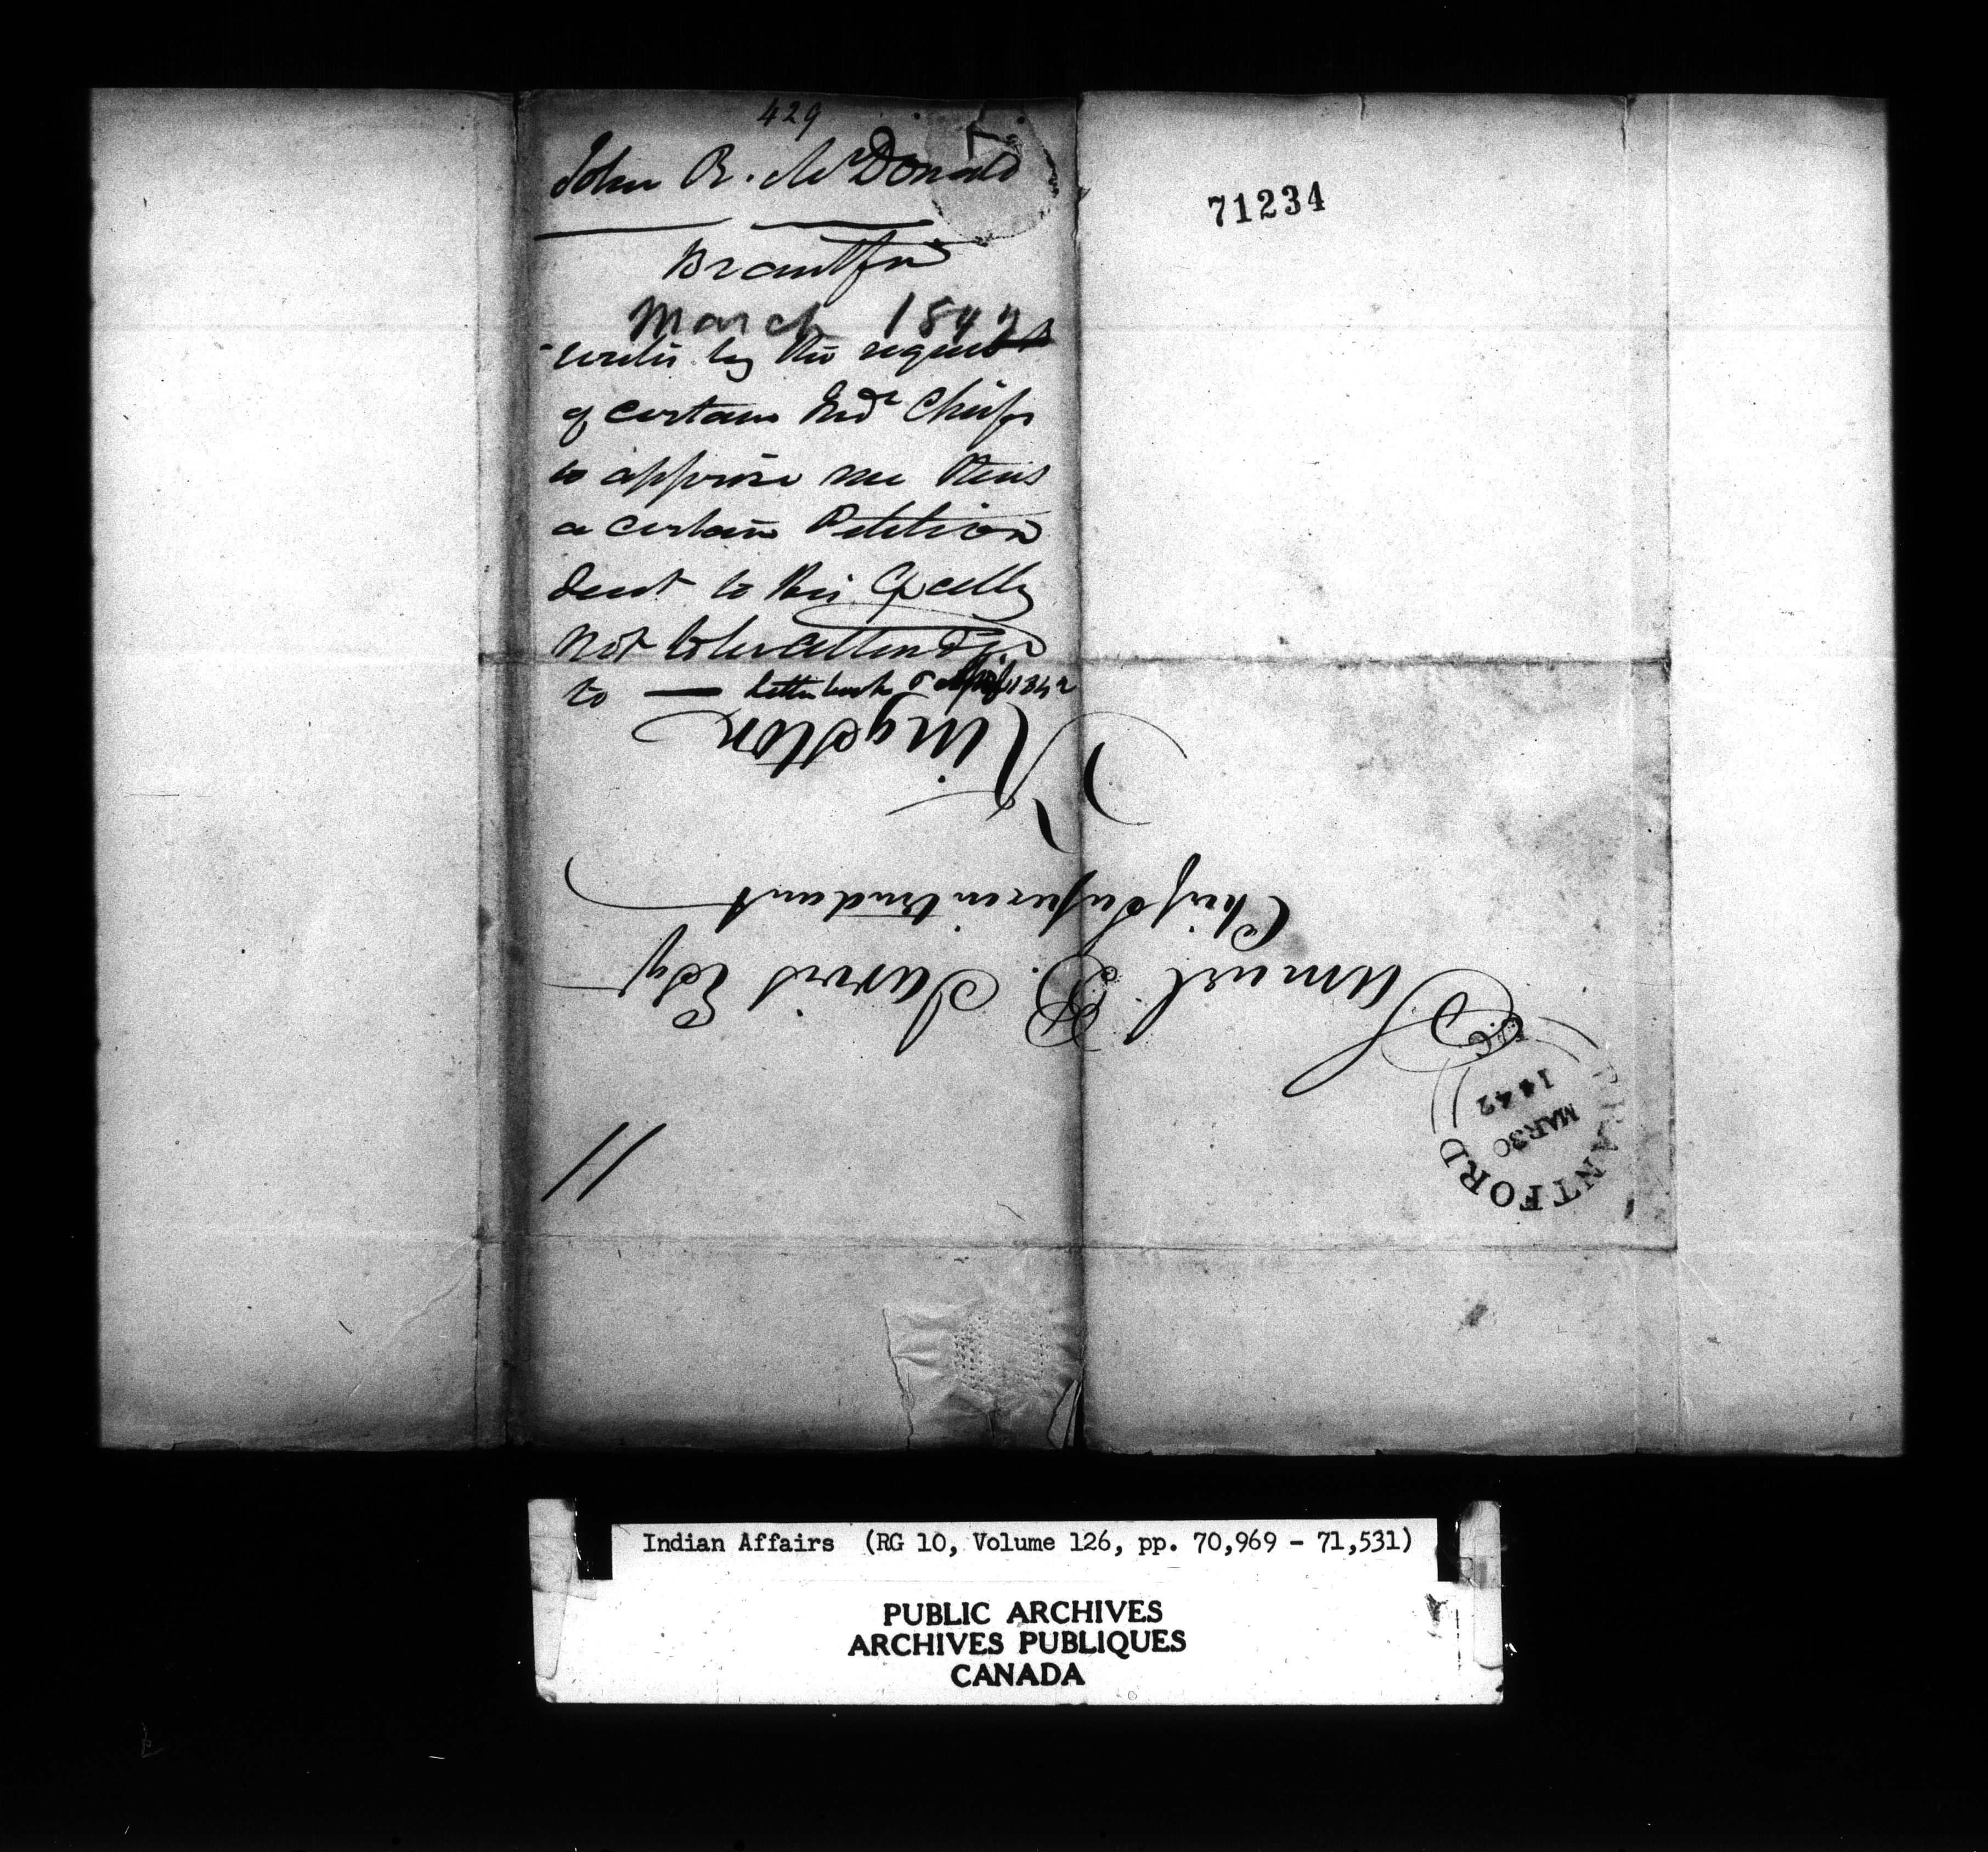 429
John R. McDonald
Brantford
March 1842
writes by the request
of certain Indn Chiefs
to apprise me
a certain Petition
sent to His Excelly
not to be attended
to — Letter book 5 April 1842
71234
Samuel P. Jarvis Esqr
Chief Superintendant
Kingston
BRANTFORD
MAR 30
1842
U.C.
11
Indian Affairs (RG 10, Volume 126, pp. 70,969 - 71,531)
PUBLIC ARCHIVES
ARCHIVES PUBLIQUES
CANADA